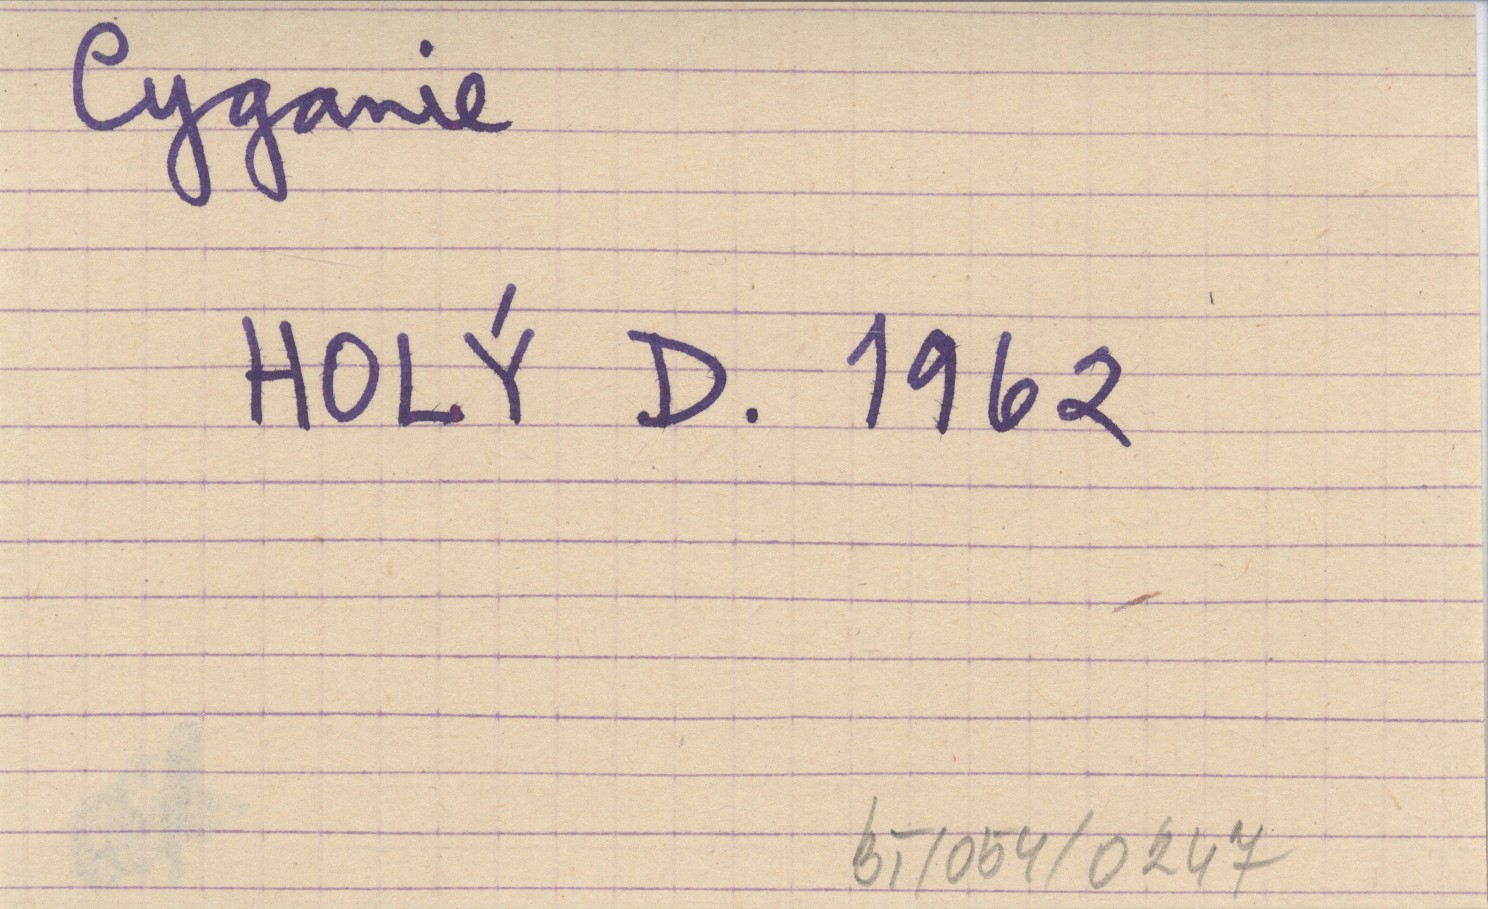 Cyganie
HOLÝ D. 1962
BI/054/0247